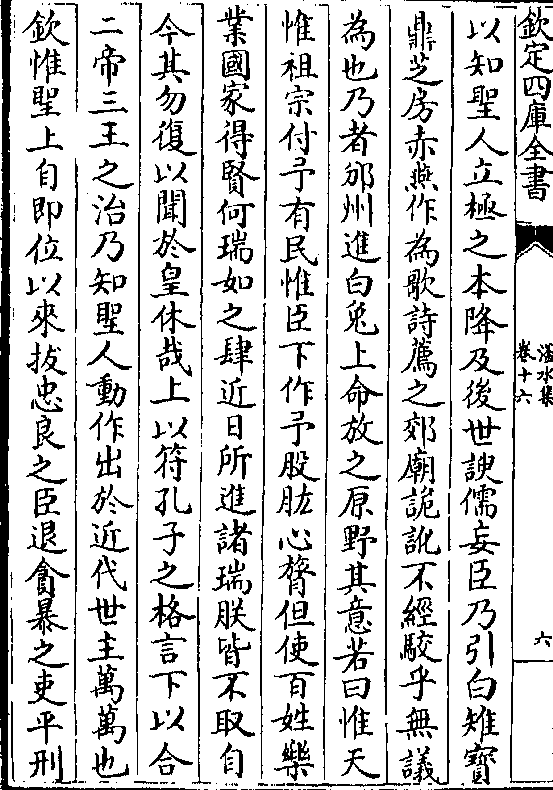 欽定四庫全書
滏水集
卷十六
六
以知聖人立極之本降及後世諛儒妄臣乃引白雉寶
鼎芝房赤鴈作為歌詩薦之郊廟詭訛不經駮乎無議
為也乃者邠州進白兎上命放之原野其意若曰惟天
惟祖宗付予有民惟臣下作予股肱心膂但使百姓樂
業國家得賢何瑞如之肆近日所進諸瑞朕皆不取自
今其勿復以聞於皇休哉上以符孔子之格言下以合
二帝三王之治乃知聖人動作出於近代世主萬萬也
欽惟聖上自即位以來拔忠良之臣退貪暴之吏平刑